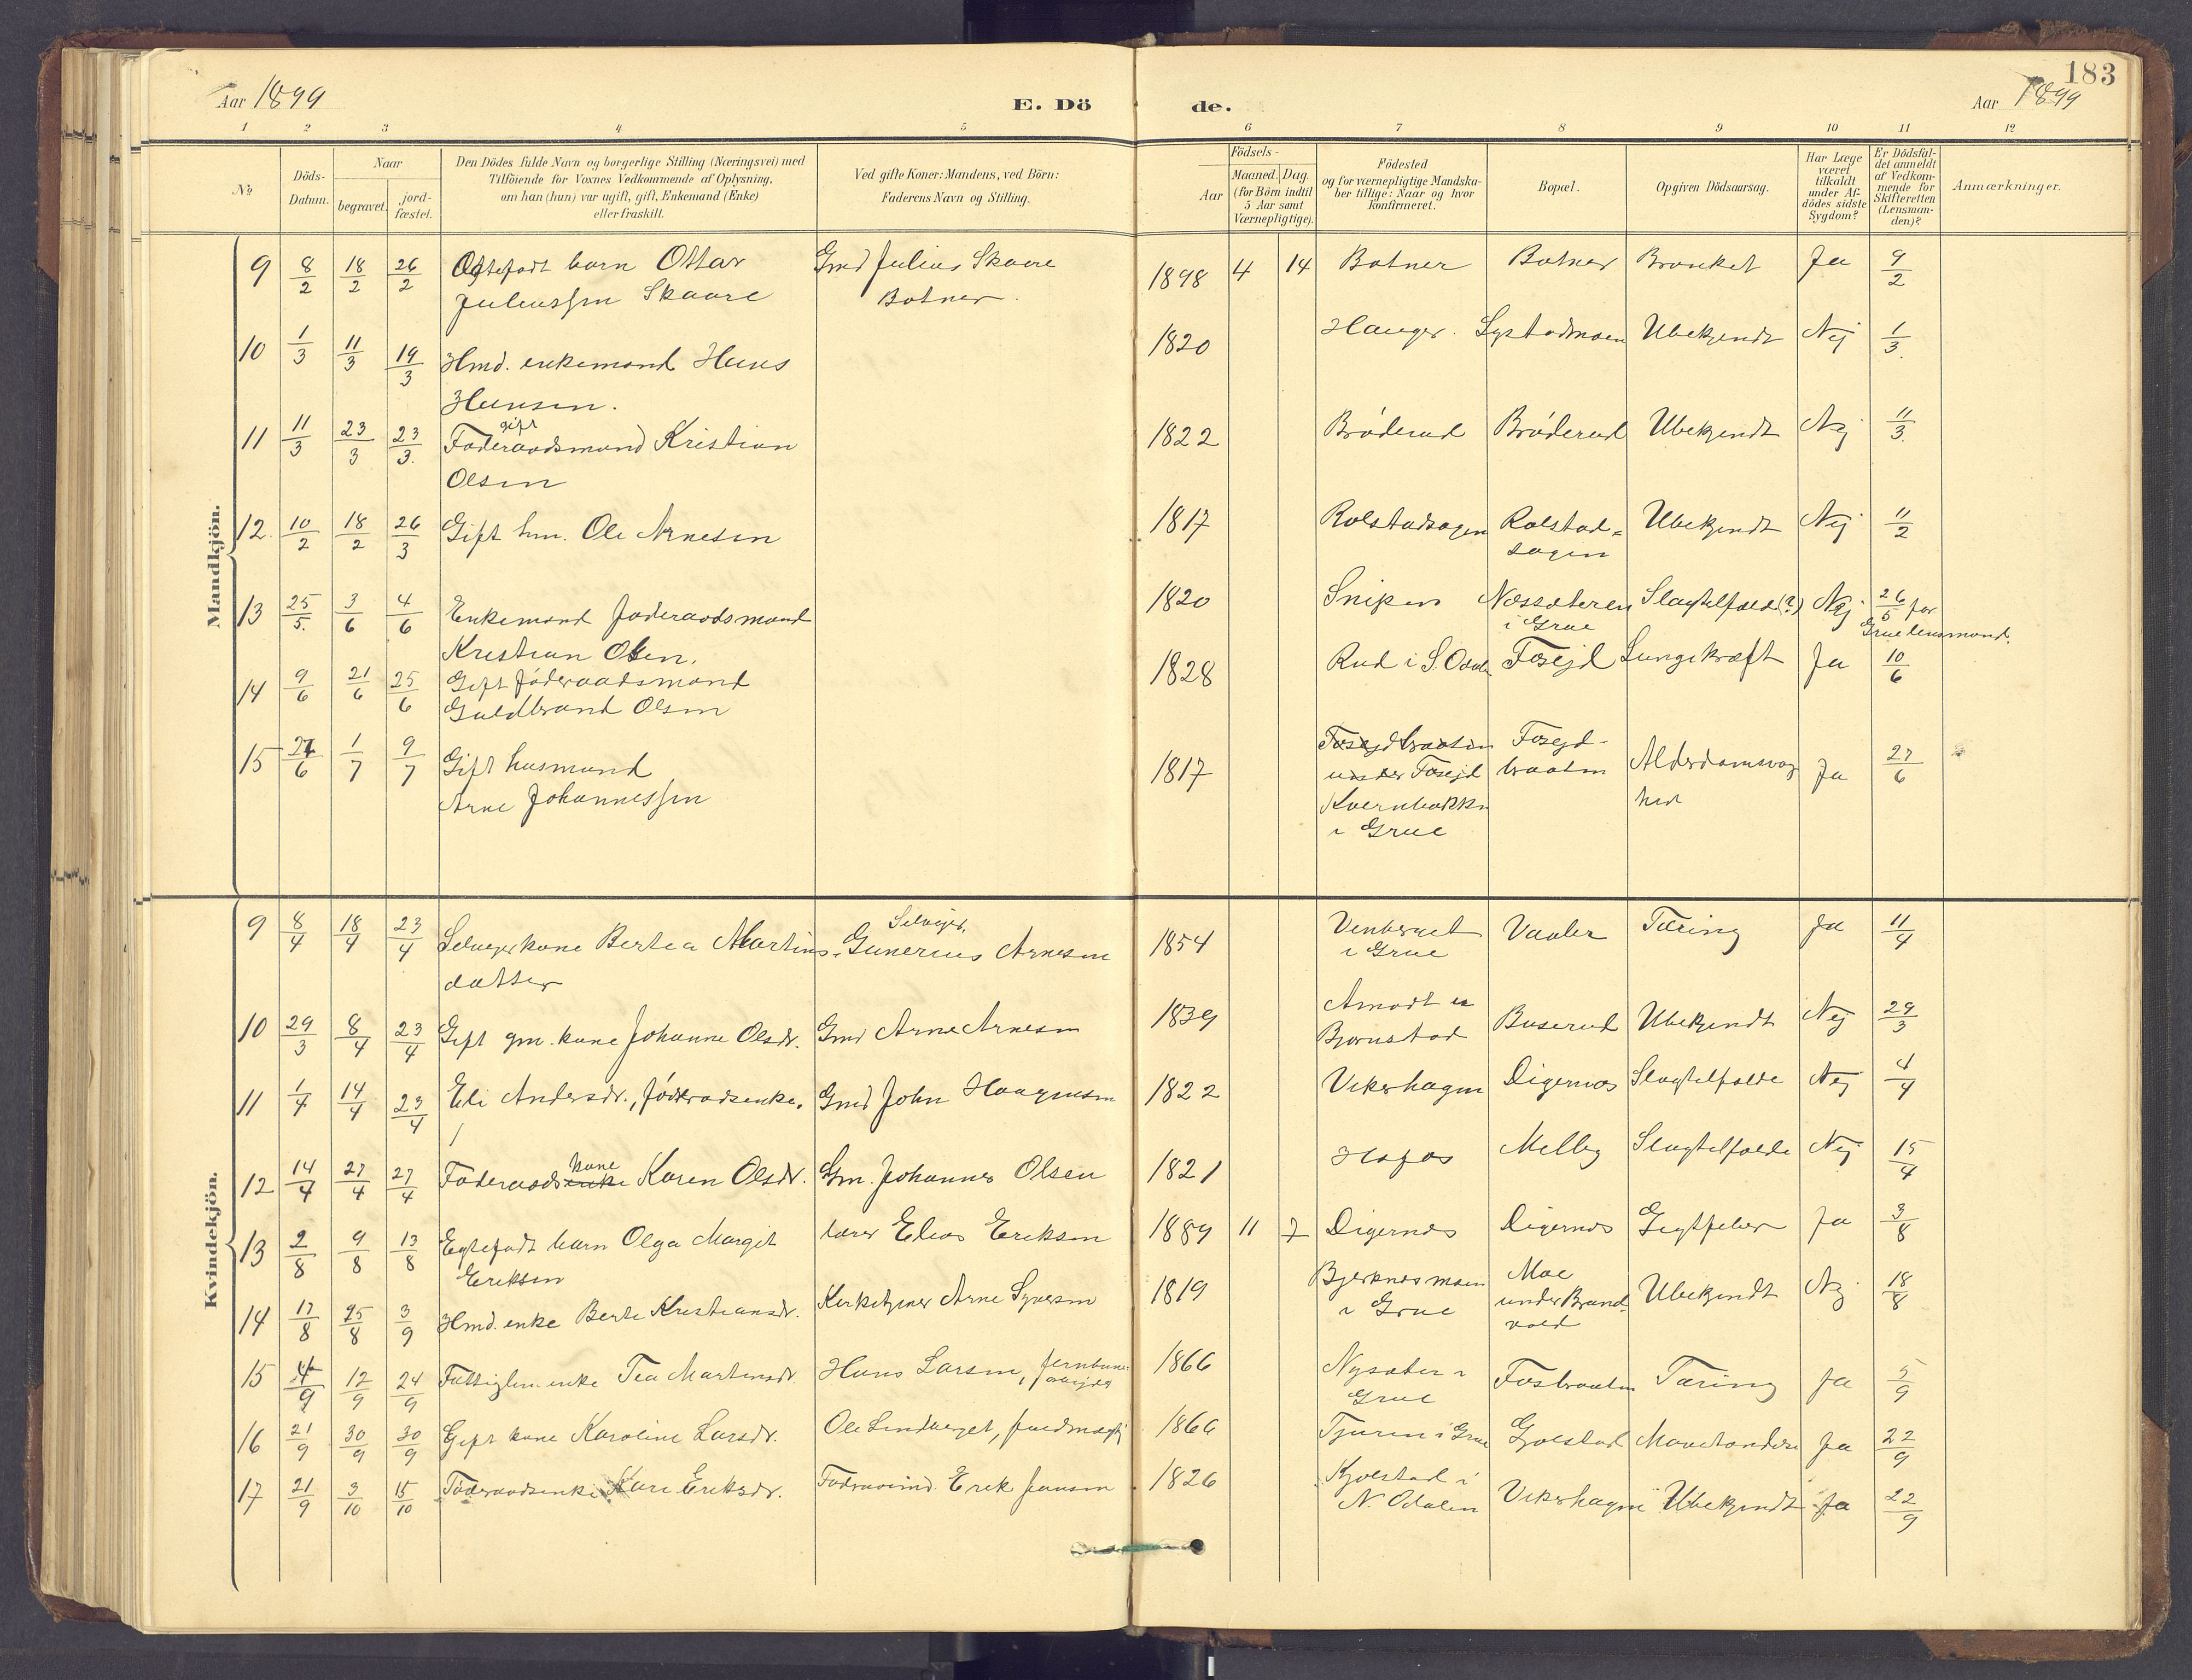 183
Aar 1899
E. Dö de.
Aar 1899
1 2 3 4 5 6 7 8 9 10 11 12
No
Döds-Datum.
Naar
begravet.
jord-fæstet.
Den Dödes fulde Navn og borgerlige Stilling (Næringsvei) med
Tilföiende for Voxnes Vedkommende af Oplysning,
om han (hun) var ugift, gift, Enkemand (Enke)
eller fraskilt.
Ved gifte Koner: Mandens, ved Börn:
Faderens Navn og Stilling.
Födsels-
Aar
Maaned. Dag.
(for Börn indtil
5 Aar samt
Værnepligtige).
Födested
og for værnepligtige Mandska-
ber tillige: Naar og hvor
konfirmeret.
Bopæl.
Opgiven Dödsaarsag.
Har Læge
været
tilkaldt
under Af-
dödes sidste
Sygdom?
Er Dödsfal-
det anmeldt
af Vedkom-
mende for
Skifteretten
(Lensman-
den)?
Anmærkninger.
Mandkjön.
9 8/2 18/2 26/2 Ægtefødt barn Ottar Gmd Julius Skaare 1898 4 14 Botner Botner Bronket Ja 9/2
Juliussen Skaare Botner.
10 1/3 11/3 19/3 Hmd. enkemand Hans 1820 Hauger. Systadmoen Ubekjendt Nej 1/3.
Hansen.
gift
11 11/3 23/3 23/3. Føderaadsmand Kristian 1822 Bröderud Bröderud Ubekjendt Nej 11/3.
Olsen
12. 10/2 18/2 26/3 Gift hm. Ole Arnesen 1817 Rolstadsagen Rolstad-Ubekjendt Nej 11/2
sagen
13 25/5. 3/6 4/6 Enkemand føderaadsmand 1820 Snipen Næssæteren Slagtilfælde(?) Nej 26/5 for
i Grue Grue lensmand.
Kristian Olsen.
14 9/6 21/6 25/6 Gift føderaadsmand 1828 Rud i S. Odalen Fosejd Lungekræft Ja 10/6
Guldbrand Olsen
15 27/6 1/7 9/7 Gift husmand 1817 Fosejdbraaten Fosejd-Alderdomssvag Ja 27/6
Arne Johannessen under Fosejd braaten hed
Kvernbakken
i Grue
Kvindekjön.
Selvejer,
9 8/4 18/4 23/4 Selvejerkone Bertea Martins-Gunerius Arnesen 1854 Venberget Vaaler Tæring Ja 11/4
datter i Grue
10 29/3 8/4 23/4 Gift gm. kone Johanne Olsdr. Gmd Arne Arnesen 1839 Arnodt Buserud Ubekjendt Nej 29/3
Bjørnstad
11 1/4 14/4 23/4 Eli Andersdr., føderaadsenke. Gmd John Haagensen 1822 Vikerhagen Digernes Slagtilfælde Nej 4/4
kone
12 14/4 27/4 27/4 Føderaadsenke Karen Olsdr. Gm. Johannes Olsen 1821 Hofos Melby Slagtilfælde Nej 15/4
13 2/8 9/8 13/8 Egtefødt barn Olga Margit lærer Elias Eriksen 1889 11 7 Digernes Digernes Gigtfeber Ja 3/8
Eriksen
14 17/8 25/8 3/9 Hmd. enke Berte Kristiansdr. Kirketjener Arne Syversen 1819 Bjerknesmoen Moe Ubekjendt Nej 18/8
i Grue under Brand
vold
15 4/9 12/9 24/9 Fattiglem enke Tea Martinsdr. Hans Larsen, jernbane-1866 Nysæter i Fosbraaten Tæring Ja 5/9
arbejder Grue
16 21/9 30/9 30/9 Gift kone Karoline Larsdr. Ole Lindberget, fuldmægtig 1866 Tjuren i Grue Gjølstad Mavetandere Ja 22/9
17 21/9 3/10 15/10 Føderaadsenke Kari Eriksdr. Føderaasmd. Erik Jansen 1826 Kjølstad i Vikerhagen Ubekjendt Ja 22/9
N. Odalen